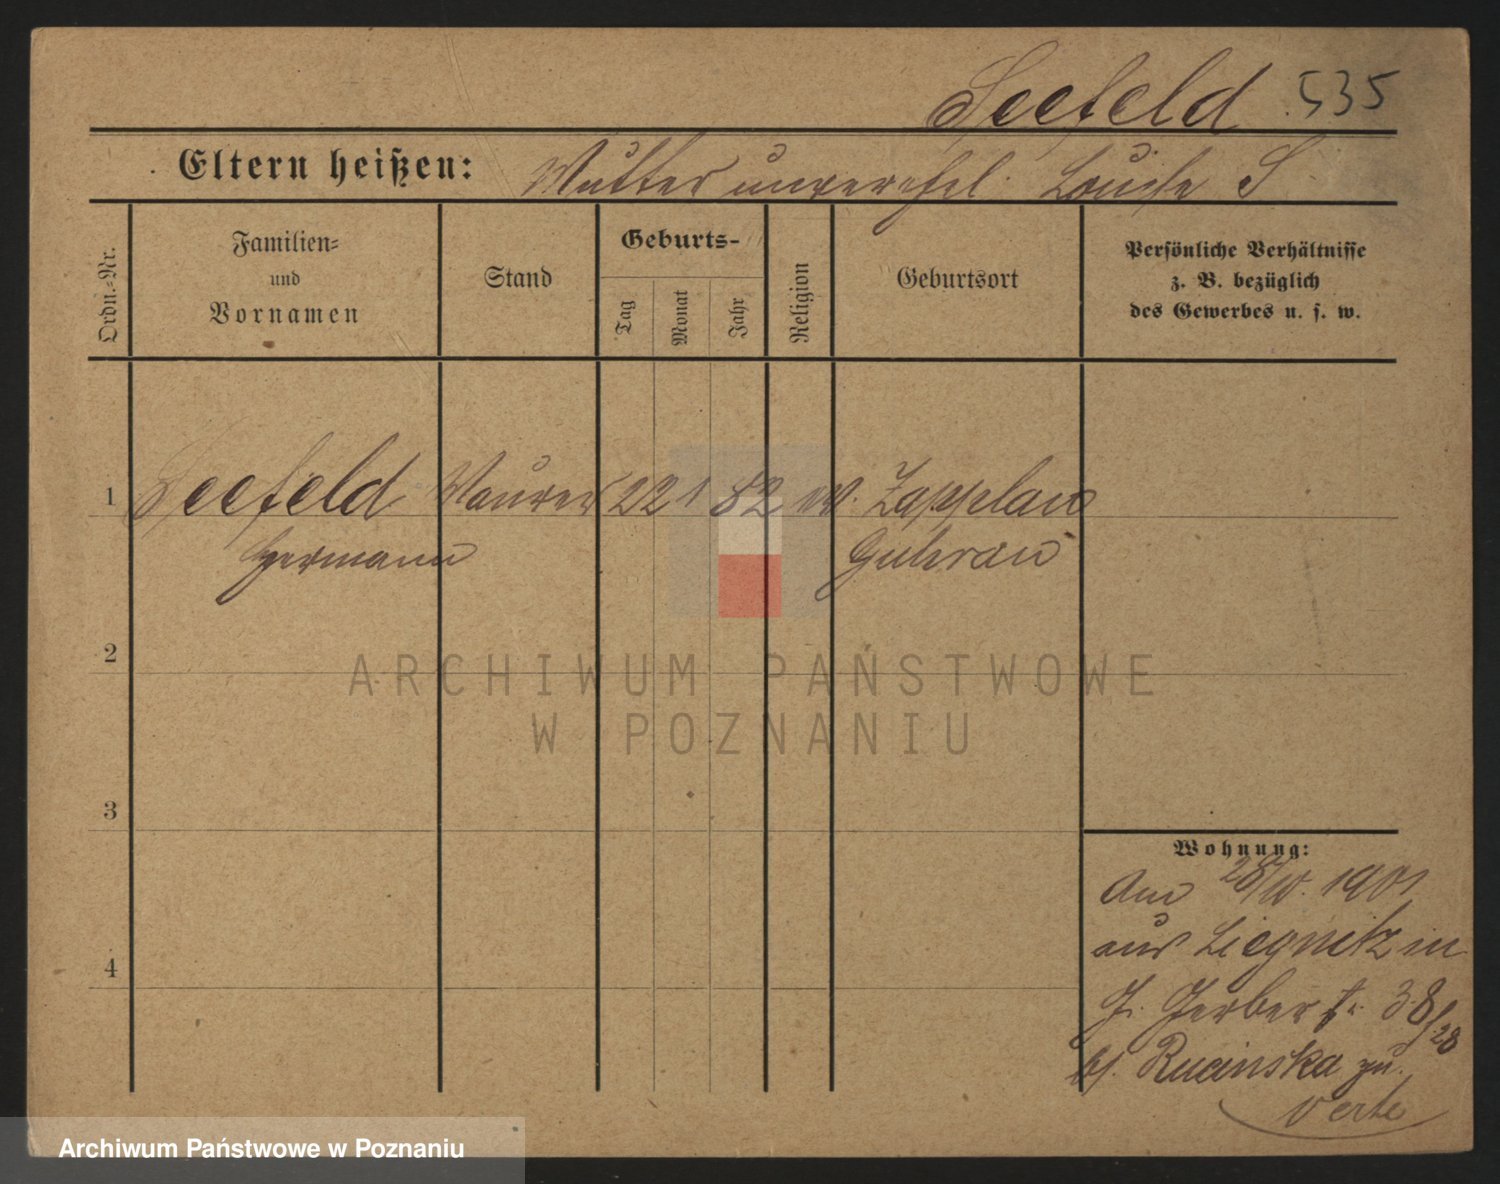 Seefeld 535
Eltern heißen: Mutter unverehel. Louise S
Ordn.-Nr.
Familien-
und
Vornamen
Stand
Geburts-
Tag
Monat
Jahr
Religion
Geburtsort
Persönliche Verhältnisse
z. B. bezüglich
des Gewerbes u. s. w.
1 Seefeld Maurer 22 1 82 Zapplau
Hermann Guhrau
2
3
4
Wohnung:
Am 28/10. 1901
aus Liegnitz in
J. Gerber str. 38/28
bf. Rucinska zu.
verte
ARCHIWUM PAŃSTWOWE
W POZNANIU
Archiwum Państwowe w Poznaniu